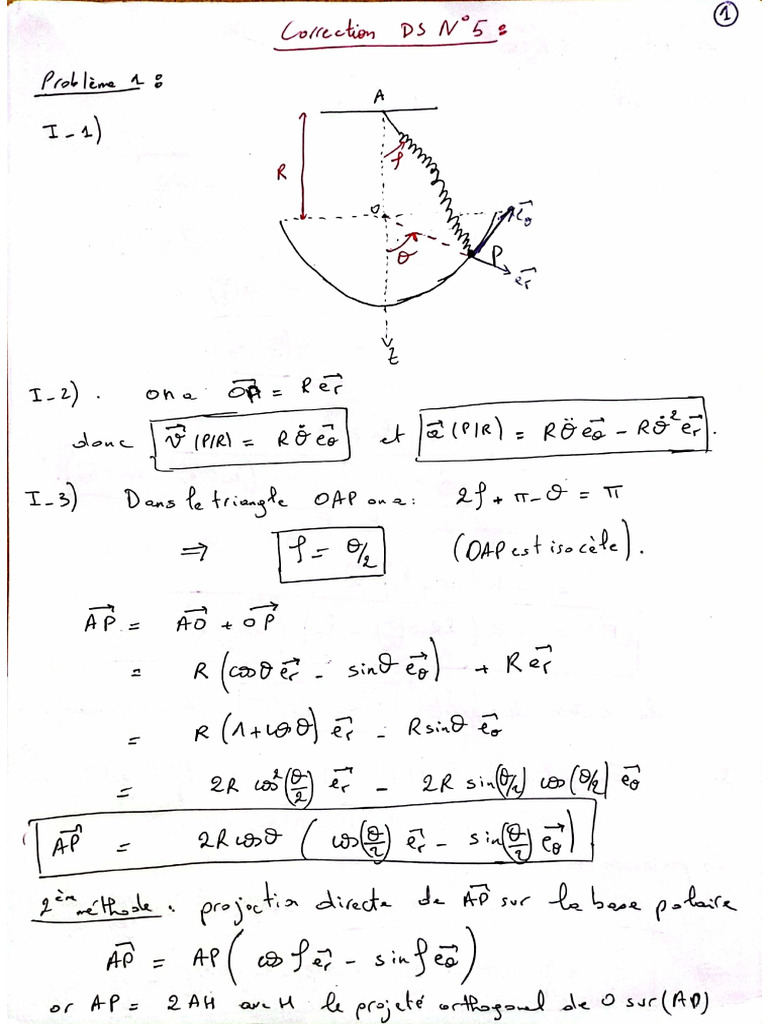 1
Correction DS N°5 :
Problème 1 :
I-1)
A
R
φ
O
θ
P
e⃗θ
e⃗r
Z
I-2) . on a O⃗A = R e⃗r
donc v⃗(P/R) = R θ̈ e⃗θ et a⃗(P/R) = R θ̈ e⃗θ - R θ̇² e⃗r .
I-3) Dans le triangle OAP on a : 2φ + π - θ = π
⇒ φ = θ/2 (OAP est isocèle).
A⃗P = A⃗O + O⃗P
= R (cosθ e⃗r - sinθ e⃗θ) + R e⃗r
= R (1+cosθ) e⃗r - R sinθ e⃗θ
= 2R cos²(θ/2) e⃗r - 2R sin(θ/2) cos(θ/2) e⃗θ
A⃗P = 2R cosθ ( cos(θ/2) e⃗r - sin(θ/2) e⃗θ )
2ème méthode : projection directe de A⃗P sur la base polaire
A⃗P = AP ( cosφ e⃗r - sinφ e⃗θ )
or AP = 2AH avec H le projeté orthogonal de O sur (AP)